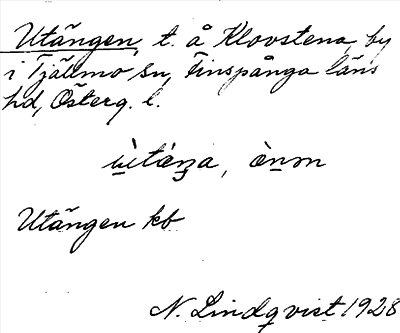 Utängen, t. å Klovstena by
i Tjällmo sn, Finspånga läns
hd, Österg. l.
Utängen kb
N. Lindqvist 1928